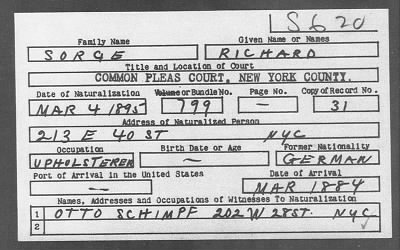 LS620
Family Name Given Name or Names
SORGE RICHARD
Title and Location of Court
COMMON PLEAS COURT, NEW YORK COUNTY.
Date of Naturalization Volume or Bundle No. Page No. Copy of Record No.
MAR 4 1895 799 — 31
Address of Naturalized Person
213 E 40 ST NYC
Occupation Birth Date or Age Former Nationality
UPHOLSTERER — GERMAN
Port of Arrival in the United States Date of Arrival
— MAR 1884
Names, Addresses and Occupations of Witnesses To Naturalization
1 OTTO SCHIMPF 202 W 28 ST. NYC
2